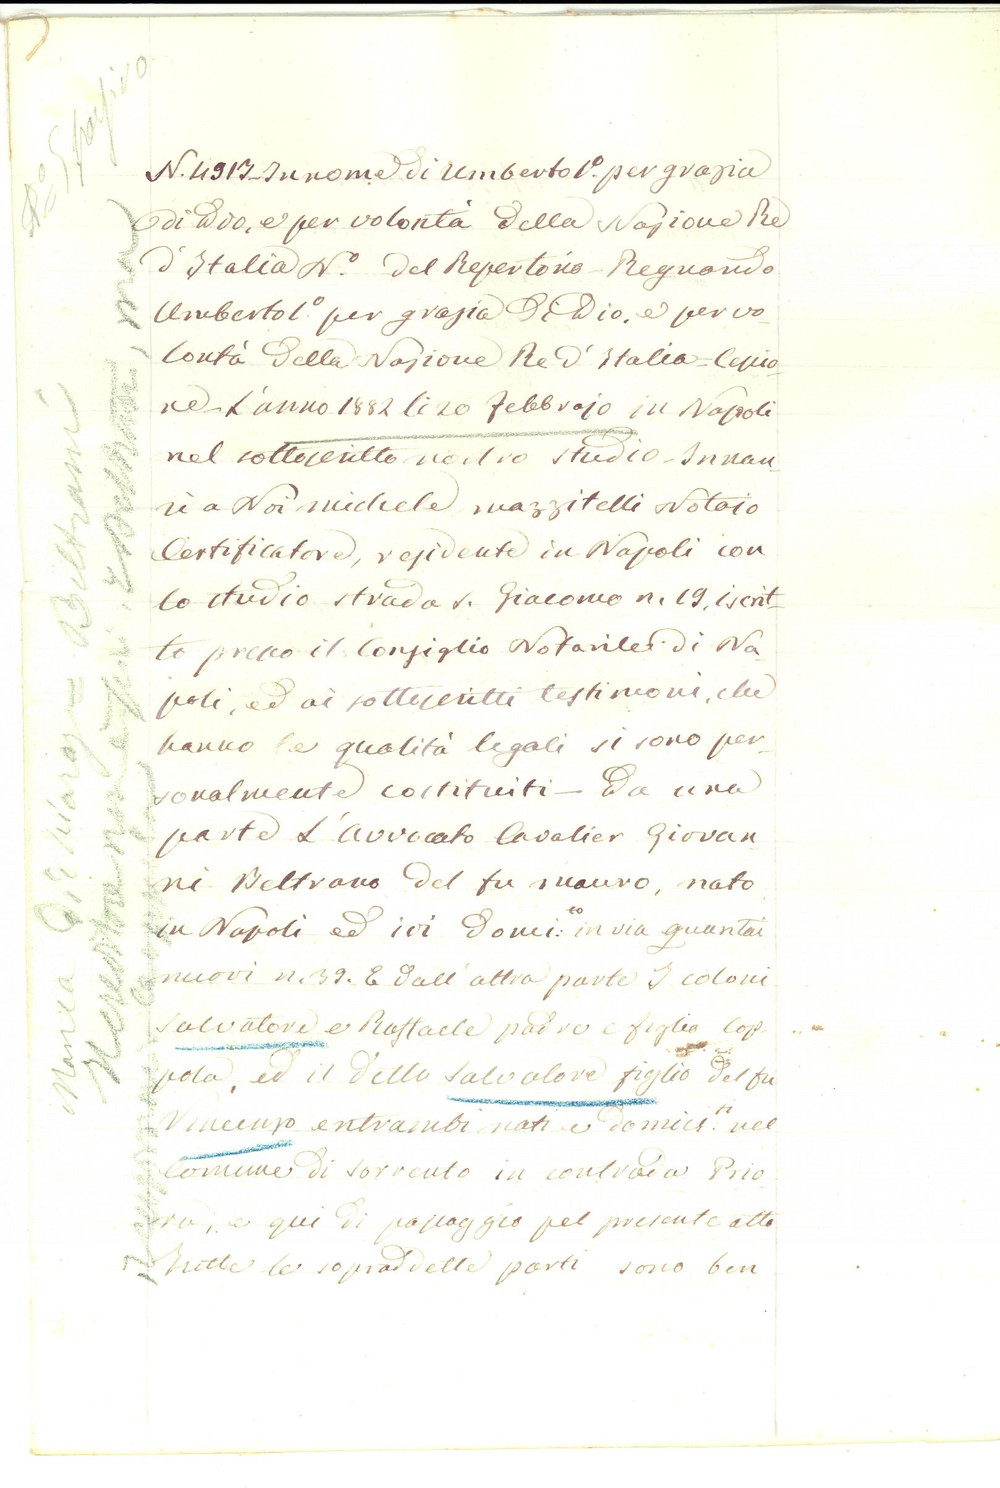 N. 4913_ In nome di Umberto I°. per grazia
di Dio, e per volontà della Nazione Re
d'Italia N.° del Repertorio_ Regnando
Umberto I° per grazia di Dio, e per vo_
lontà della Nazione Re d'Italia_ Cessio_
ne_ L'anno 1882 li 20 Febbrajo in Napoli
nel sottoscritto nostro studio_ Innan_
zi a Noi michele mazzitelli Notaio
Certificatore, residente in Napoli con
lo studio strada S. Giacomo n. 19, iscrit_
to presso il Consiglio Notarile di Na_
poli, ed ai sottoscritti testimoni, che
hanno le qualità legali si sono per_
sonalmente costituiti_ Da una
parte L'Avvocato Cavalier Giovan_
ni Beltrano del fu mauro, nato
in Napoli ed ivi domi:to in via guantai
nuovi n. 39. E dall'altra parte I coloni
Salvatore e Raffaele padre e figlio Cop_
pola, ed il detto Salvatore figlio del fu
Vincenzo entrambi nati e domicil.ti nel
Comune di Sorrento in contrada Prio_
ra, e qui di passaggio pel presente atto
Tutte le sopraddette parti sono ben
N.° 5 passivo
Beltrami